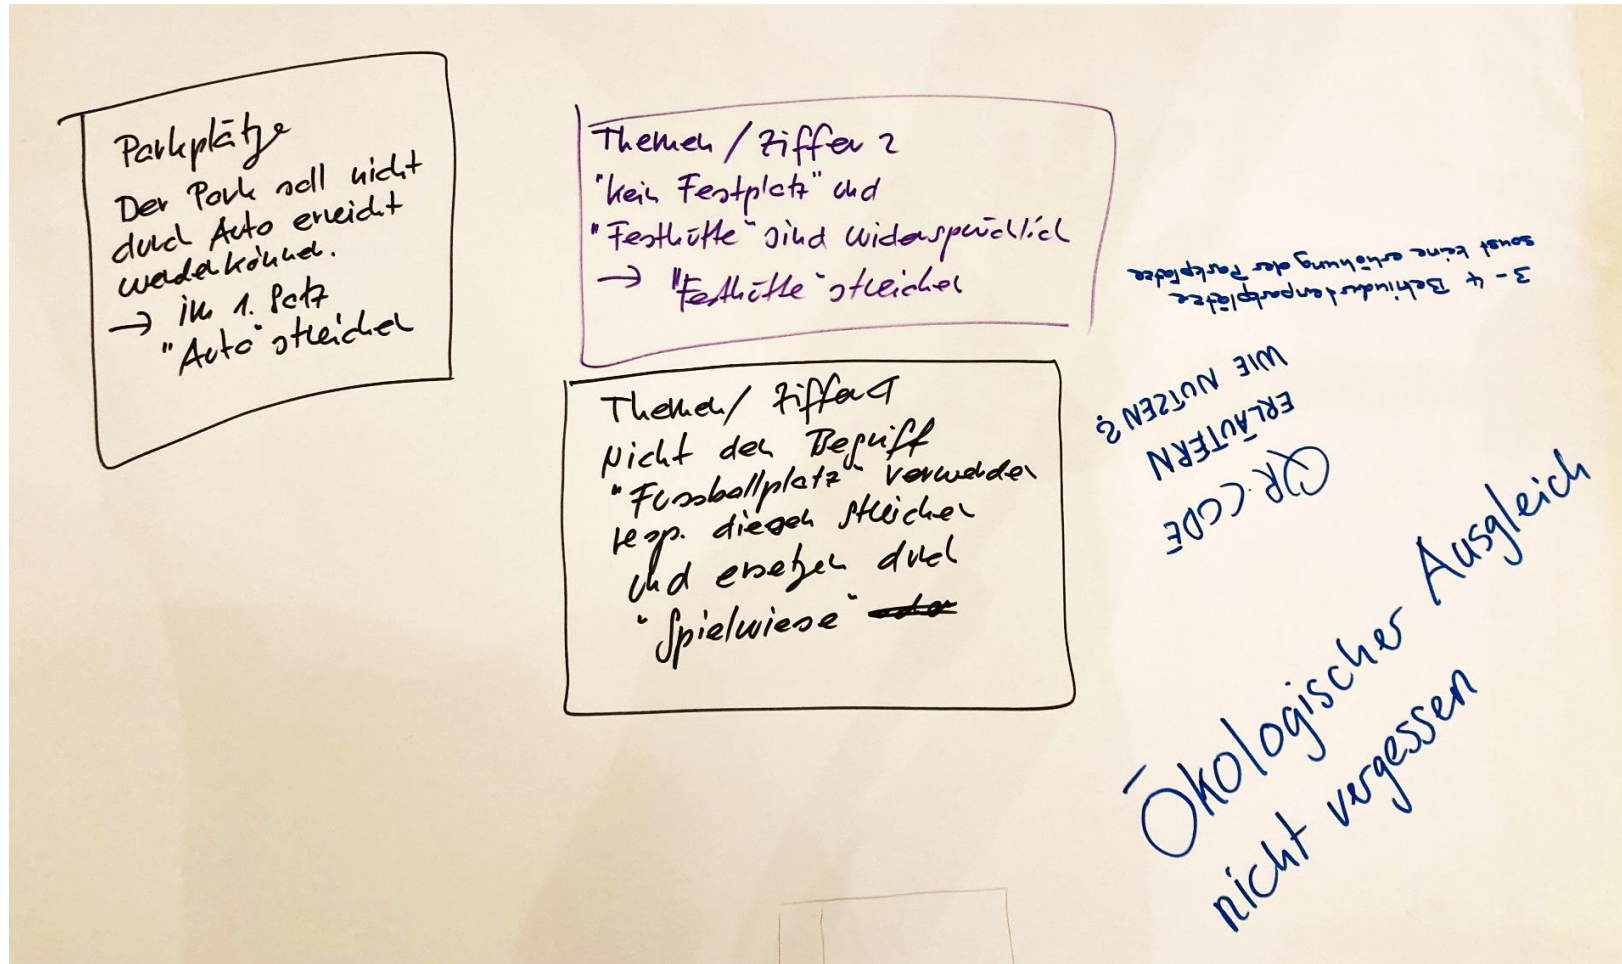 Parkplätze
Der Park soll nicht
durch Auto erreicht
werden können.
→ im 1. Satz
"Auto" streichen
Themen / Ziffer 2
"kein Festplatz" und
"Festhütte" sind widersprüchlich
→ "Festhütte" streichen
Themen / Ziffer 1
Nicht den Begriff
"Fussballplatz" verwenden
resp. diesen streichen
und ersetzen durch
"Spielwiese"
3-4 Behindertenparkplätze
sonst keine erhöhung der Parkplätze
QR-CODE
ERLÄUTERN
WIE NUTZEN?
Ökologischer Ausgleich
nicht vergessen